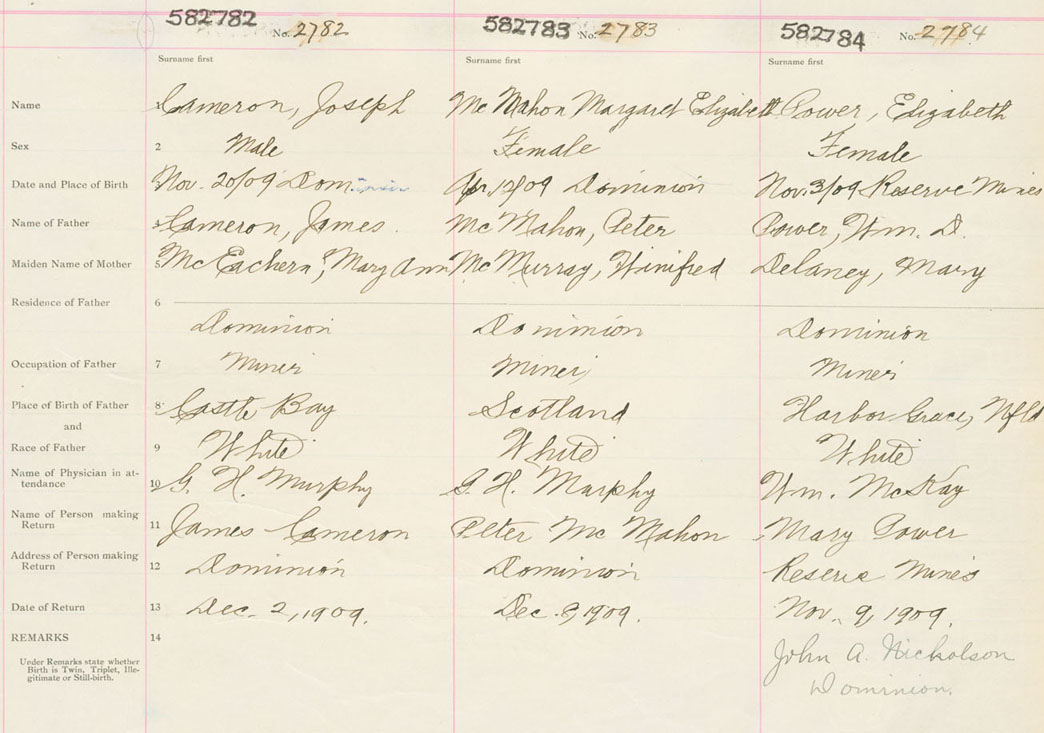 582782 No. 2782 582783 No. 2783 582784 No. 2784
Surname first Surname first Surname first
Name 1 Cameron, Joseph McMahon Margaret Elizabeth Power, Elizabeth
Sex 2 Male Female Female
Date and Place of Birth Nov. 20/09 Dominion Apr. 12/09 Dominion Nov. 3/09 Reserve Mines
Name of Father 4 Cameron, James. McMahon, Peter Power, Wm. D.
Maiden Name of Mother 5 McEachern, Mary Ann McMurray, Winifred Delaney, Mary
Residence of Father 6
Dominion Dominion Dominion
Occupation of Father 7 Miner Miner Miner
Place of Birth of Father 8 Castle Bay Scotland Harbor Grace, Nfld
and
Race of Father 9 White White White
Name of Physician in at-
tendance 10 G. H. Murphy G. H. Murphy Wm. McKay
Name of Person making
Return 11 James Cameron Peter McMahon Mary Power
Address of Person making
Return 12 Dominion Dominion Reserve Mines
Date of Return 13 Dec. 2, 1909. Dec. 8, 1909. Nov. 9, 1909.
REMARKS 14
John A. Nicholson
Dominion.
Under Remarks state whether
Birth is Twin, Triplet, Ille-
gitimate or Still-birth.